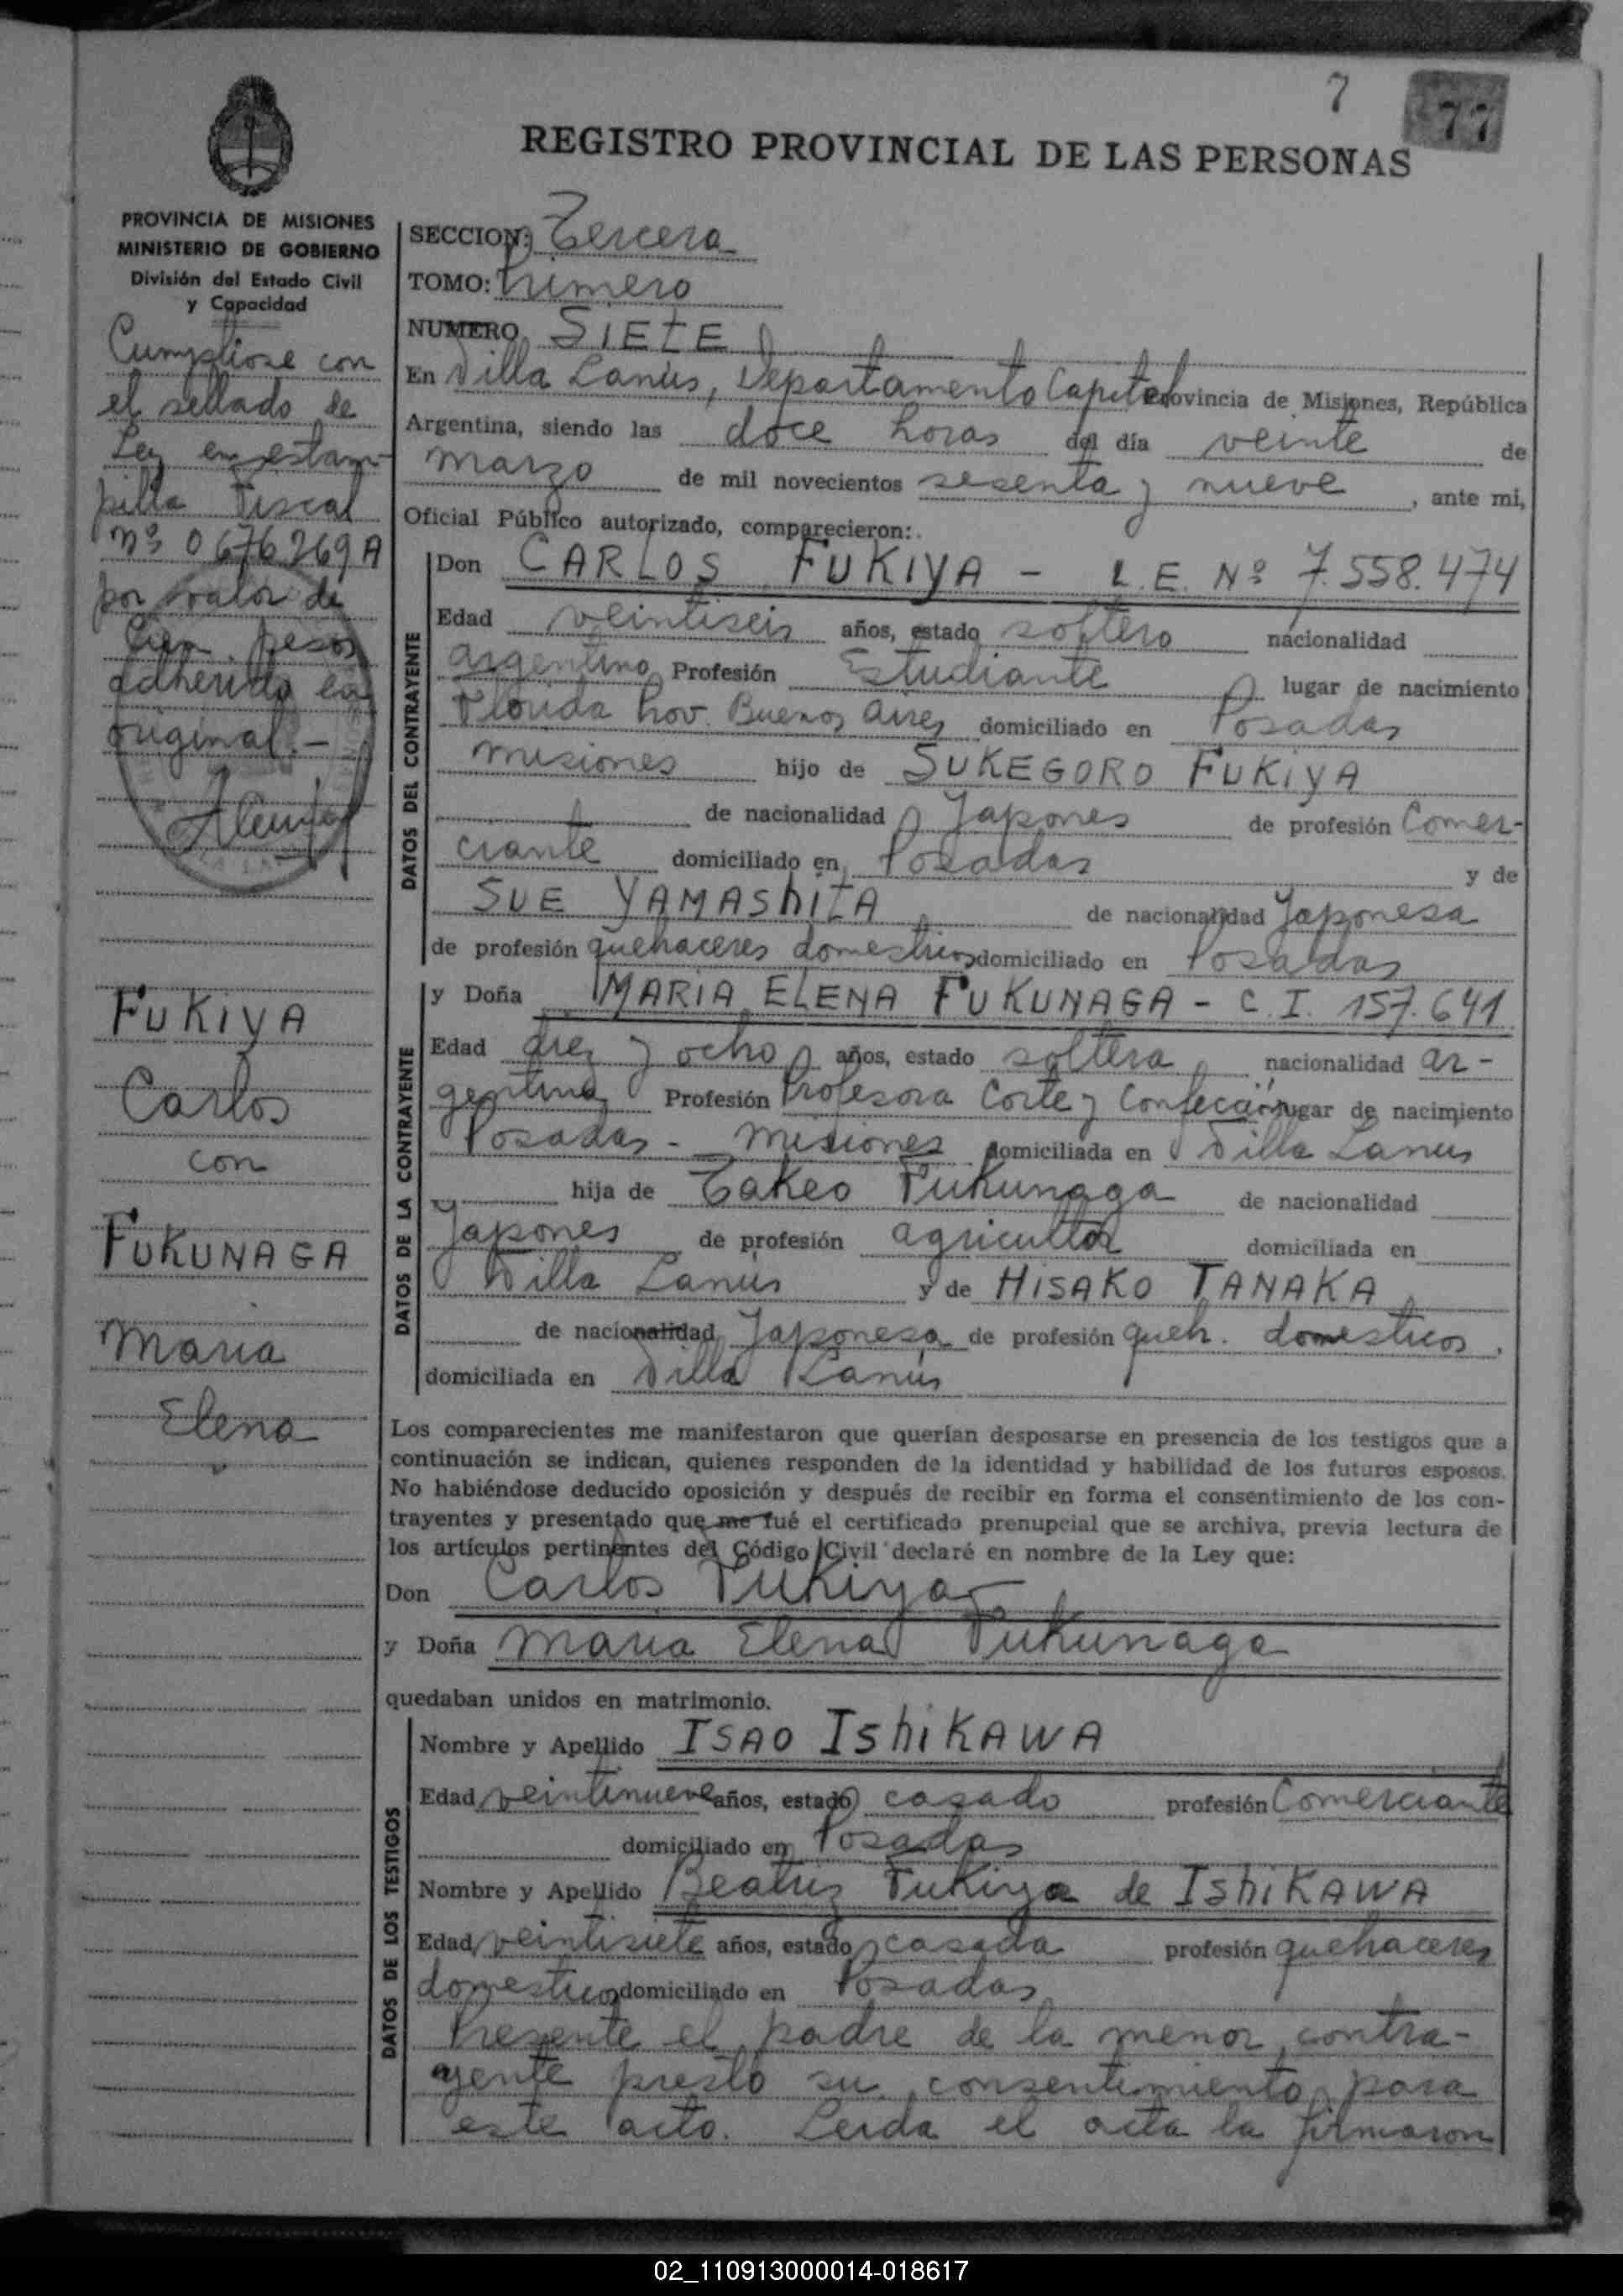 7
77
REGISTRO PROVINCIAL DE LAS PERSONAS
PROVINCIA DE MISIONES
MINISTERIO DE GOBIERNO
División del Estado Civil
y Capacidad
Cumpliose con
el sellado de
Ley en estam-
pilla Fiscal
nº 0676269A
por valor de
Cien pesos
adherida en
original.-
FUKIYA
Carlos
con
FUKUNAGA
Maria
Elena
SECCION: Tercera
TOMO: Primero
NUMERO SIETE
En Villa Lanús, Departamento Capital Provincia de Misiones, República
Argentina, siendo las doce horas del día veinte de
marzo de mil novecientos sesenta y nueve, ante mi,
Oficial Público autorizado, comparecieron:
DATOS DEL CONTRAYENTE
Don CARLOS FUKIYA - L.E. Nº 7.558.474
Edad veintiseis años, estado soltero nacionalidad
argentino Profesión Estudiante lugar de nacimiento
Florida Prov. Buenos Aires domiciliado en Posadas
Misiones hijo de SUKEGORO FUKIYA
de nacionalidad Japones de profesión Comer-
ciante domiciliado en Posadas y de
SUE YAMAShITA de nacionalidad Japonesa
de profesión quehaceres domesticos domiciliado en Posadas
DATOS DE LA CONTRAYENTE
y Doña MARIA ELENA FUKUNAGA - C.I. 157.641
Edad diez y ocho años, estado soltera nacionalidad ar-
gentina Profesión Profesora Corte y Confección lugar de nacimiento
Posadas - Misiones domiciliada en Villa Lanus
hija de Takeo Fukunaga de nacionalidad
Japones de profesión agricultor domiciliada en
Villa Lanús y de HISAKO TANAKA
de nacionalidad Japonesa de profesión queh. domesticos.
domiciliada en Villa Lanús
Los comparecientes me manifestaron que querían desposarse en presencia de los testigos que a
continuación se indican, quienes responden de la identidad y habilidad de los futuros esposos.
No habiéndose deducido oposición y después de recibir en forma el consentimiento de los con-
trayentes y presentado que me fué el certificado prenupcial que se archiva, previa lectura de
los artículos pertinentes del Código Civil declaré en nombre de la Ley que:
Don Carlos Fukiya
y Doña Maria Elena Fukunaga
quedaban unidos en matrimonio.
DATOS DE LOS TESTIGOS
Nombre y Apellido ISAO IShiKAWA
Edad veintinueve años, estado casado profesión Comerciante
domiciliado en Posadas
Nombre y Apellido Beatriz Fukiya de IShiKAWA
Edad veintisiete años, estado casada profesión quehaceres
domesticos domiciliado en Posadas
Presente el padre de la menor contra-
yente presto su consentimiento para
este acto. Leida el acta la firmaron
02_110913000014-018617